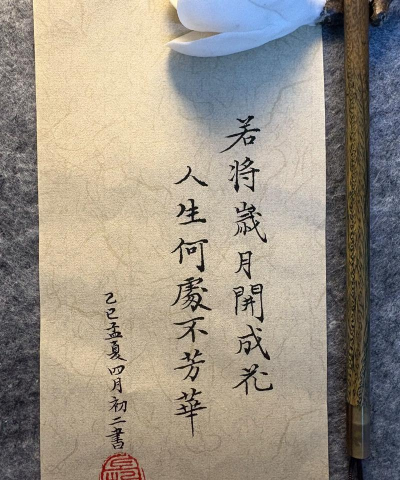 若将歲月開成花
人生何處不芳華
乙巳孟夏四月初二書